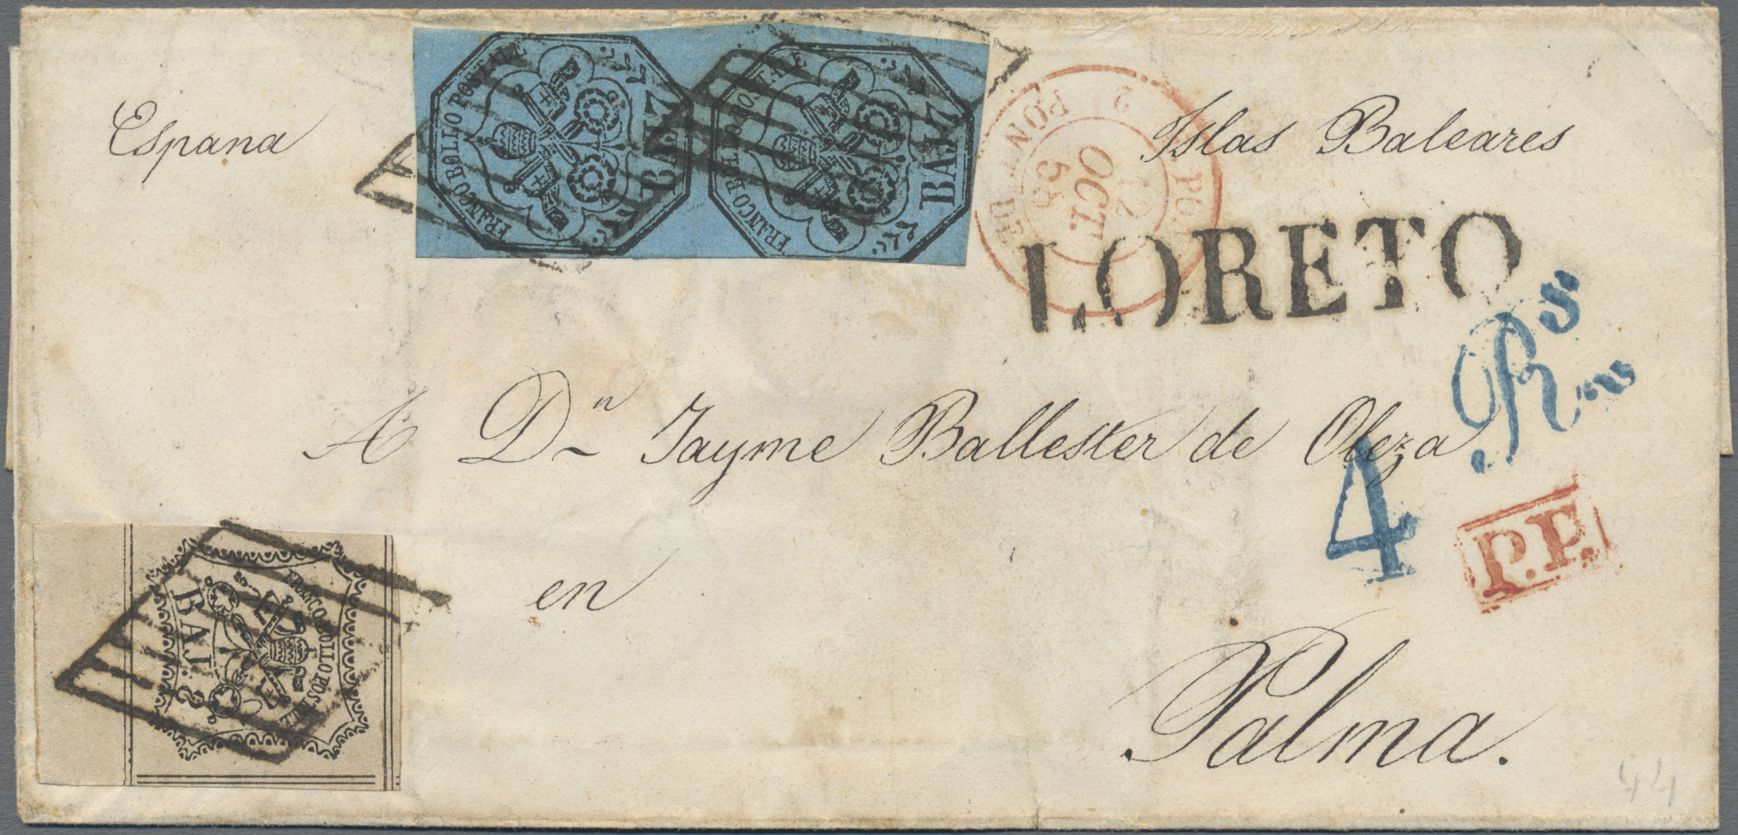 FRANCO BOLLO POSTALE
BAJ. 7
FRANCO BOLLO POSTALE
BAJ. 7
España Islas Baleares
12
OCT.
59
LORETO
Rs
A Dn Jayme Ballester de Oleza
4
P.P.
FRANCO BOLLO POSTALE
BAJ. 8
en
Palma.
44